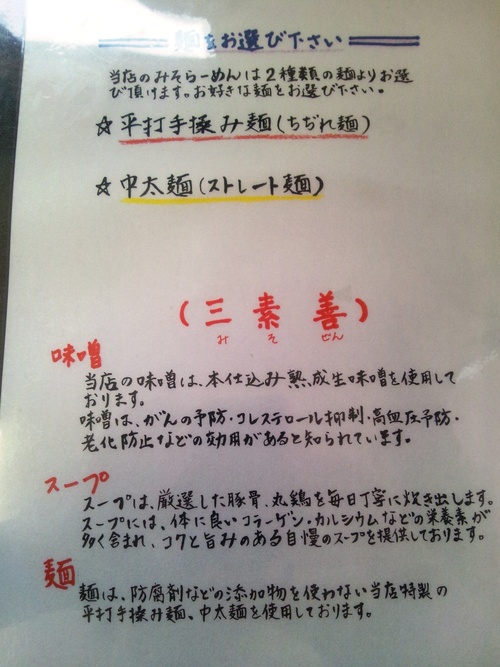 麺をお選び下さい
当店のみそらーめんは2種類の麺よりお選
び頂けます。お好きな麺をお選び下さい。
☆平打手揉み麺(ちぢれ麺)
☆中太麺(ストレート麺)
(三素善)
み そ ぜん
味噌
当店の味噌は、本仕込み熟成生味噌を使用して
おります。
味噌は、がんの予防・コレステロール抑制・高血圧予防・
老化防止などの効用があると知られています。
スープ
スープは、厳選した豚骨、丸鶏を毎日丁寧に炊き出します。
スープには、体に良いコラーゲン・カルシウムなどの栄養素が
多く含まれ、コクと旨みのある自慢のスープを提供しております。
麺
麺は、防腐剤などの添加物を使わない当店特製の
平打手揉み麺、中太麺を使用しております。